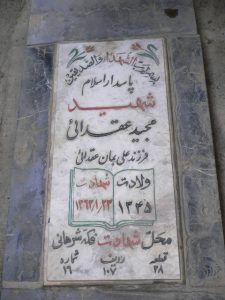 بسم رب الشهداء والصدیقین
پاسدار اسلام
شهید
مجید عقدائی
فرزند علی جان عقدائی
ولادت شهادت
۱۳۴۵ ۱۳۶۲/۱/۲۳
محل شهادت فکه شرهانی
قطعه ردیف شماره
۲۸ ۱۰۷ ۱۶